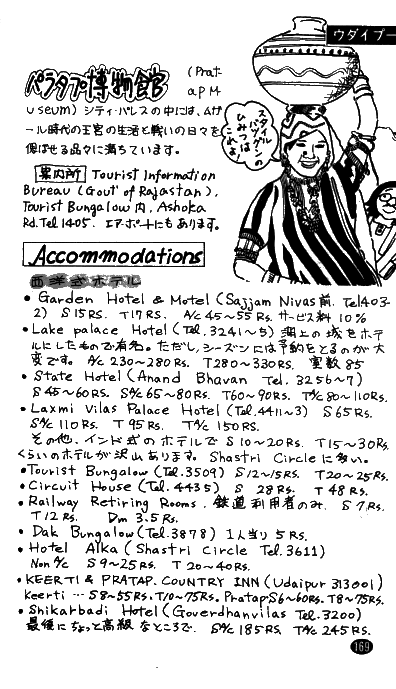 ウダイプー
パラタプ博物館 (Prat-
ap M-
useum) シティ・パレスの中には、ムガ
ール時代の王宮の生活と戦いの日々を
偲ばせる品々に満ちています。
スタイル
バツグンの
ひみつは
これよ!
案内所 Tourist Information
Bureau (Gout of Rajastan),
Tourist Bungalow 内, Ashoka
Rd. Tel 1405. エアーポートにもあります。
Accommodations
西洋式ホテル
• Garden Hotel & Motel (Sajjam Nivas 前. Tel 403-
2) S 15 Rs. T 17 Rs. A/c 45~55 Rs. サービス料 10%
• Lake palace Hotel (Tel. 3241~5) 湖上の城をホテ
ルにしたもので有名。ただし、シーズンには予約をとるのが大
変です。A/c 230~280 Rs. T 280~330 Rs. 室数 85
• State Hotel (Anand Bhavan Tel. 3256~7)
S 45~60 Rs. S A/c 65~80 Rs. T 60~90 Rs. T A/c 80~110 Rs.
• Laxmi Vilas Palace Hotel (Tel. 4411~3) S 65 Rs.
S A/c 110 Rs. T 95 Rs. T A/c 150 Rs.
その他、インド式のホテルで S 10~20 Rs. T 15~30 Rs.
くらいのホテルが沢山あります。Shastri Circle に多い。
• Tourist Bungalow (Tel. 3509) S 12~15 Rs. T 20~25 Rs.
• Circuit House (Tel. 4435) S 28 Rs. T 48 Rs.
• Railway Retiring Rooms. 鉄道利用者のみ. S 7 Rs.
T 12 Rs. Dm 3.5 Rs.
• Dak Bungalow (Tel. 3878) 1人当り 5 Rs.
• Hotel Alka (Shastri Circle Tel. 3611)
Non A/c S 9~25 Rs. T 20~40 Rs.
• KEERTI & PRATAP COUNTRY INN (Udaipur 313001)
Keerti … S 8~55 Rs. T 10~75 Rs. Pratap S 6~60 Rs. T 8~75 Rs.
• Shikarbadi Hotel (Goverdhanvilas Tel. 3200)
最後にちょっと高級なところで. S A/c 185 Rs. T A/c 245 Rs.
169